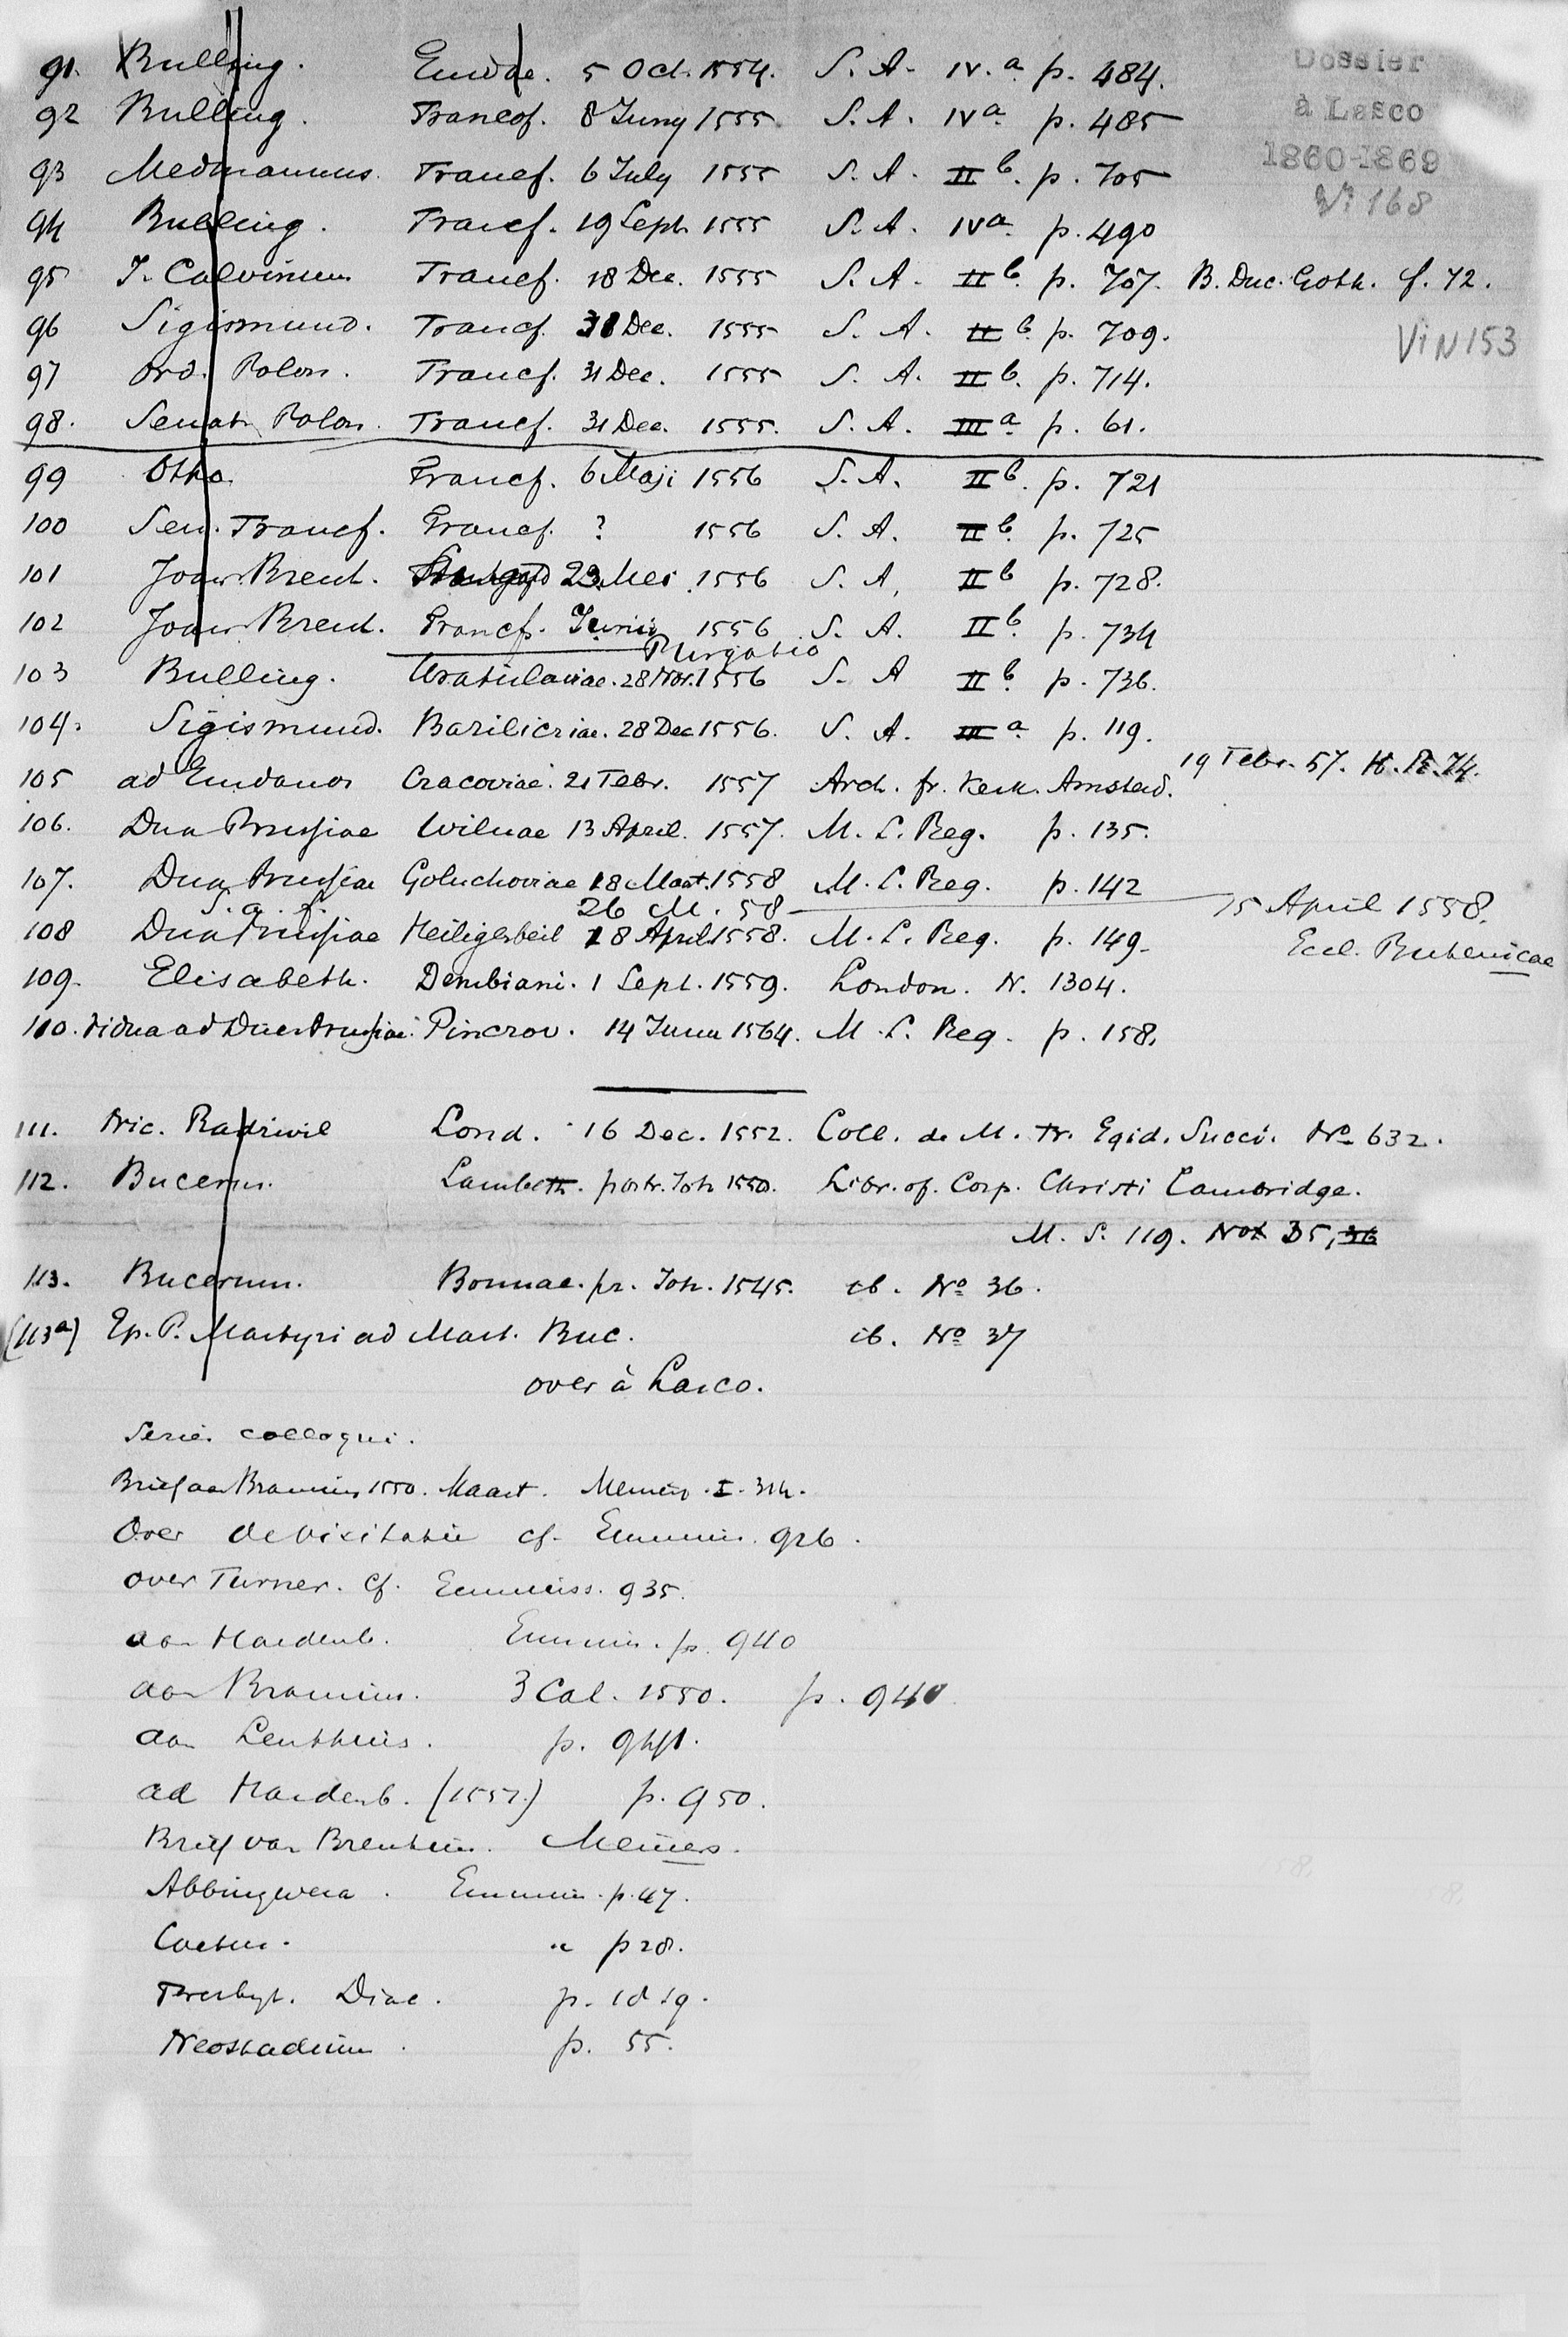 Dossier
à Lasco
1860-1869
Vi 168
91. Bulling. Emdae. 5 Oct. 1554. S. A. IV.a p. 484.
92 Bulling. Francof. 8 Juny 1555. S. A. IVa p. 485
93 Medmannus. Francf. 6 July 1555 S. A. IIb. p. 705
94 Bulling. Francf. 19 Sept. 1555 S. A. IVa p. 490
95 J. Calvinum Francf. 18 Dec. 1555 S. A. IIb. p. 707. B. Duc. Goth. f. 72.
96 Sigismund. Francf. 31 Dec. 1555 S. A. IIb. p. 709.
ViN153
97 Ord. Polon. Francf. 31 Dec. 1555 S. A. IIb. p. 714.
98. Senat. Polon. Francf. 31 Dec. 1555. S. A. IIIa p. 61.
99 Otho. Francf. 6 Maji 1556 S. A. IIb. p. 721
100 Sen. Francf. Francf. ? 1556 S. A. IIb. p. 725
101 Joan. Brent. 23 Mei 1556 S. A. IIb p. 728.
102 Joan. Brent. Francf. Junii 1556 S. A. IIb. p. 734
Purgatio
103 Bulling. Wratislaviae. 28 Nov. 1556 S. A IIb. p. 736.
104. Sigismund. Baziliciae. 28 Dec 1556. S. A. IIIa p. 119.
105 ad Emdanos Cracoviae. 21 Febr. 1557 Arch. fr. Kerk. Amsterd. 19 Febr. 57. H. R. 74.
106. Dux Prussiae Wilnae 13 April. 1557. M. S. Reg. p. 135.
107. Dux Prussiae Goluchoviae 18 Maart. 1558 M. S. Reg. p. 142
26 M. 58 15 April 1558.
108 Dux Prussiae Heiligesbeil 18 April 1558. M. S. Reg. p. 149.
Eccl. Buhenicae
109. Elisabeth. Dembiani. 1 Sept. 1559. London. N. 1304.
110. Vidua ad Ducem Prussiae. Pinczov. 14 Junii 1564. M. S. Reg. p. 158.
111. Nic. Radziwil Lond. 16 Dec. 1552. Coll. de M. Tr. Egid. Succi. No 632.
112. Bucerus. Lambeth. postr. Joh 1550. Libr. of. Corp. Christi Cambridge.
M. S. 119. No 35, 36
113. Bucerum. Bonnae. pr. Joh. 1545. ib. No 36.
(113a) Ep. P. Martyri ad Mart. Buc. ib. No 37
over à Lasco.
Series colloqui.
Brief aan Bramius 1550. Maart. Meiners. I. 314.
Over de visitatie cf. Emmius. 926.
over Turner. cf. Emmius. 935.
aan Hardenb. Emmius. p. 940
aan Bramius. 3 Cal. 1550. p. 940
aan Lenthius. p.
ad Hardenb. (1557.) p. 950.
Brief van Brentius. Meiners.
Abbingwera. Emmius. p. 47.
Coetus. " p 28.
Presbyt. Diac. p. 18 19.
Neostadium. p. 55.